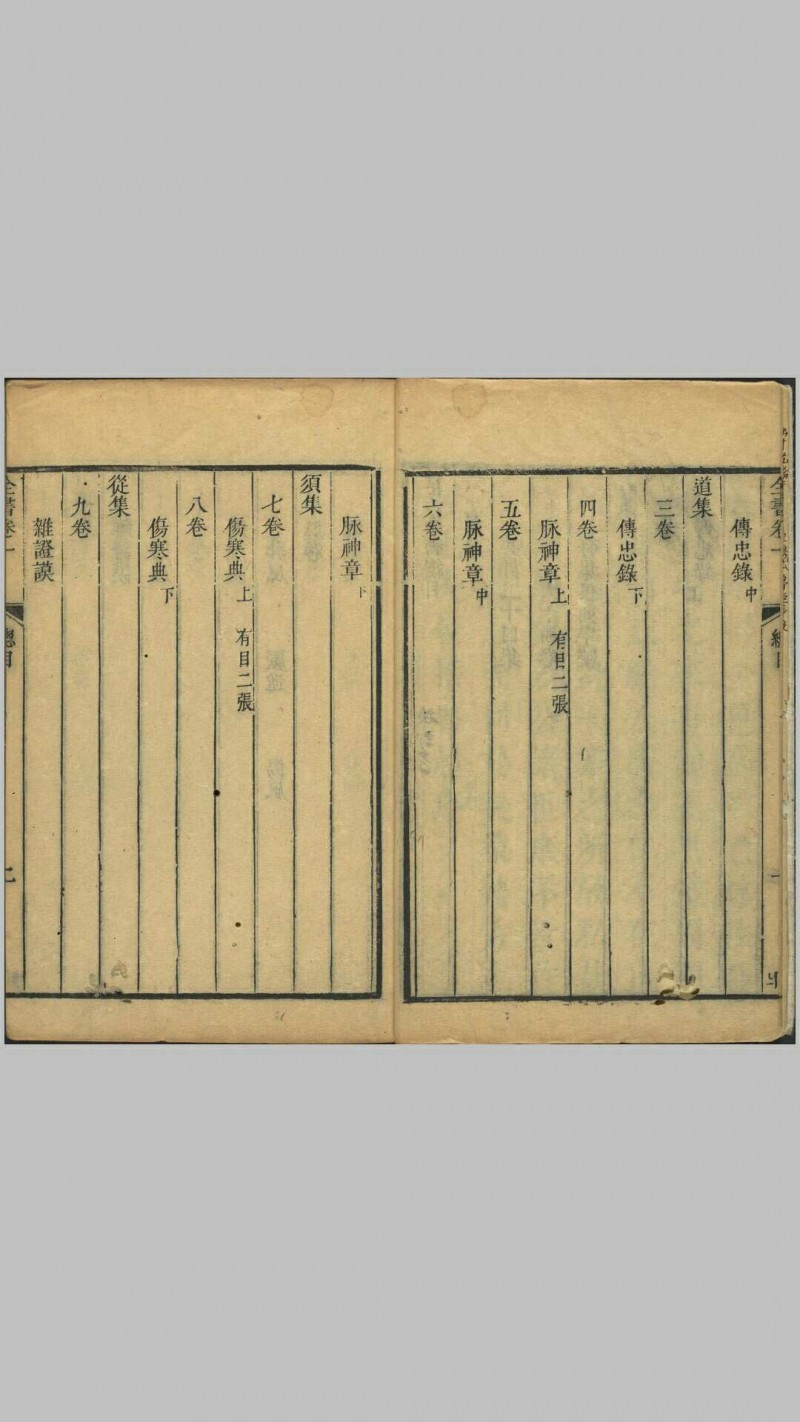 傳忠錄中
道集
三卷
傳忠錄下
四卷
脉神章上 有目二張
五卷
脉神章中
六卷
脉神章下
須集
七卷
傷寒典上 有目二張
八卷
傷寒典下
從集
九卷
雜證謨
全書卷一 總目 二